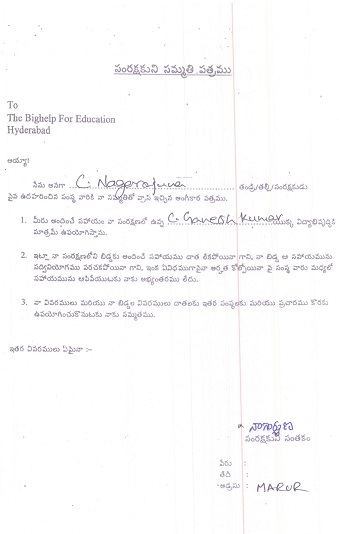 సంరక్షకుని సమ్మతి పత్రము
To
The Bighelp For Education
Hyderabad
అయ్యా!
నేను అనగా ... C. Nagarajuna ... తండ్రి/తల్లి/సంరక్షకుడు
పైన ఉదహరించిన సంస్థ వారికి నా సమ్మతితో వ్రాసి ఇచ్చిన అంగీకార పత్రము.
1. మీరు అందించే సహాయం నా సంరక్షణలో ఉన్న C. Ganesh Kumar యొక్క విద్యాభివృద్ధికి
మాత్రమే ఉపయోగిస్తాము.
2. ఇట్లా నా సంరక్షణలోని బిడ్డకు అందించే సహాయము దాత లేకపోయినా గాని, నా బిడ్డ ఆ సహాయమును
సద్వినియోగము పరచకపోయినా గాని, ఇంక ఏవిధముగానైనా అర్హత కోల్పోయినా పై సంస్థ వారు మధ్యలో
సహాయమును ఆపివేయుటకు నాకు అభ్యంతరము లేదు.
3. నా వివరములు మరియు నా బిడ్డల వివరములు దాతలకు ఇతర సంస్థలకు మరియు ప్రచారము కొరకు
ఉపయోగించుకొనుటకు నాకు సమ్మతము.
ఇతర వివరములు ఏమైనా :-
నాగార్జున
సంరక్షకుని సంతకం
పేరు :
తేది :
అడ్రసు : MARUR